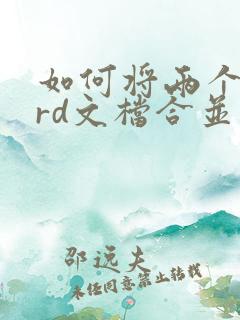 如何将两个
rd文檔合並
邵远夫
未经同意禁止转载